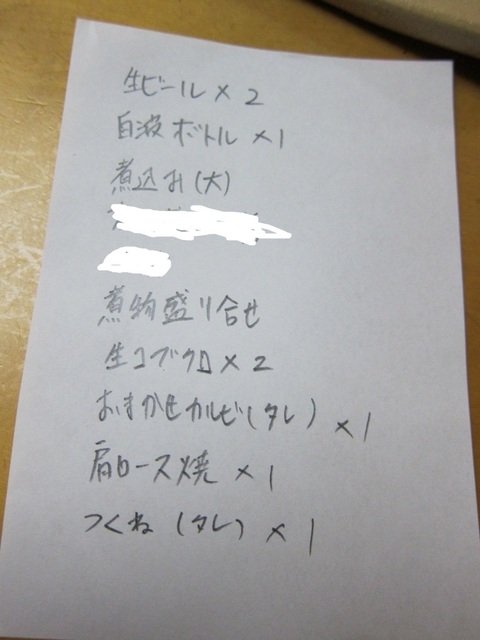 生ビール×2
白波ボトル×1
煮込み(大)
煮物盛り合せ
生コブクロ×2
おまかせカルビ(タレ)×1
肩ロース焼×1
つくね(タレ)×1